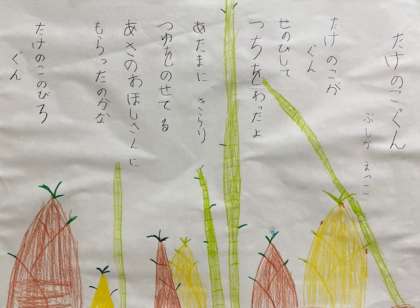 たけのこぐん
ぶしか えつこ
たけのこが
ぐん
せのびして
つちをわったよ
あたまに きらり
つゆをのせてる
あさのおほしさんに
もらったのかな
たけのこのびろ
ぐん